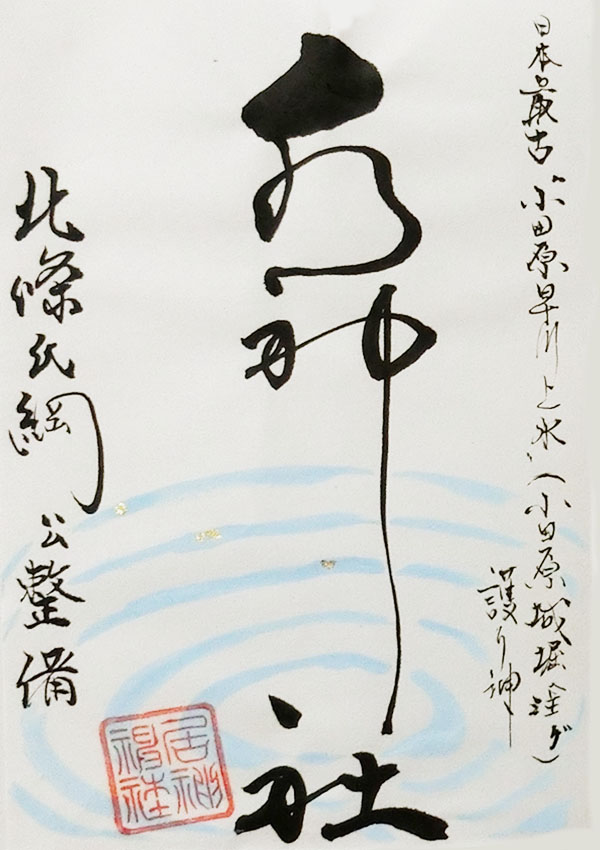 日本最古〝小田原早川上水〟(小田原城堀へ注グ)
護り神
水神社
北條氏綱 公整備
居神
神社